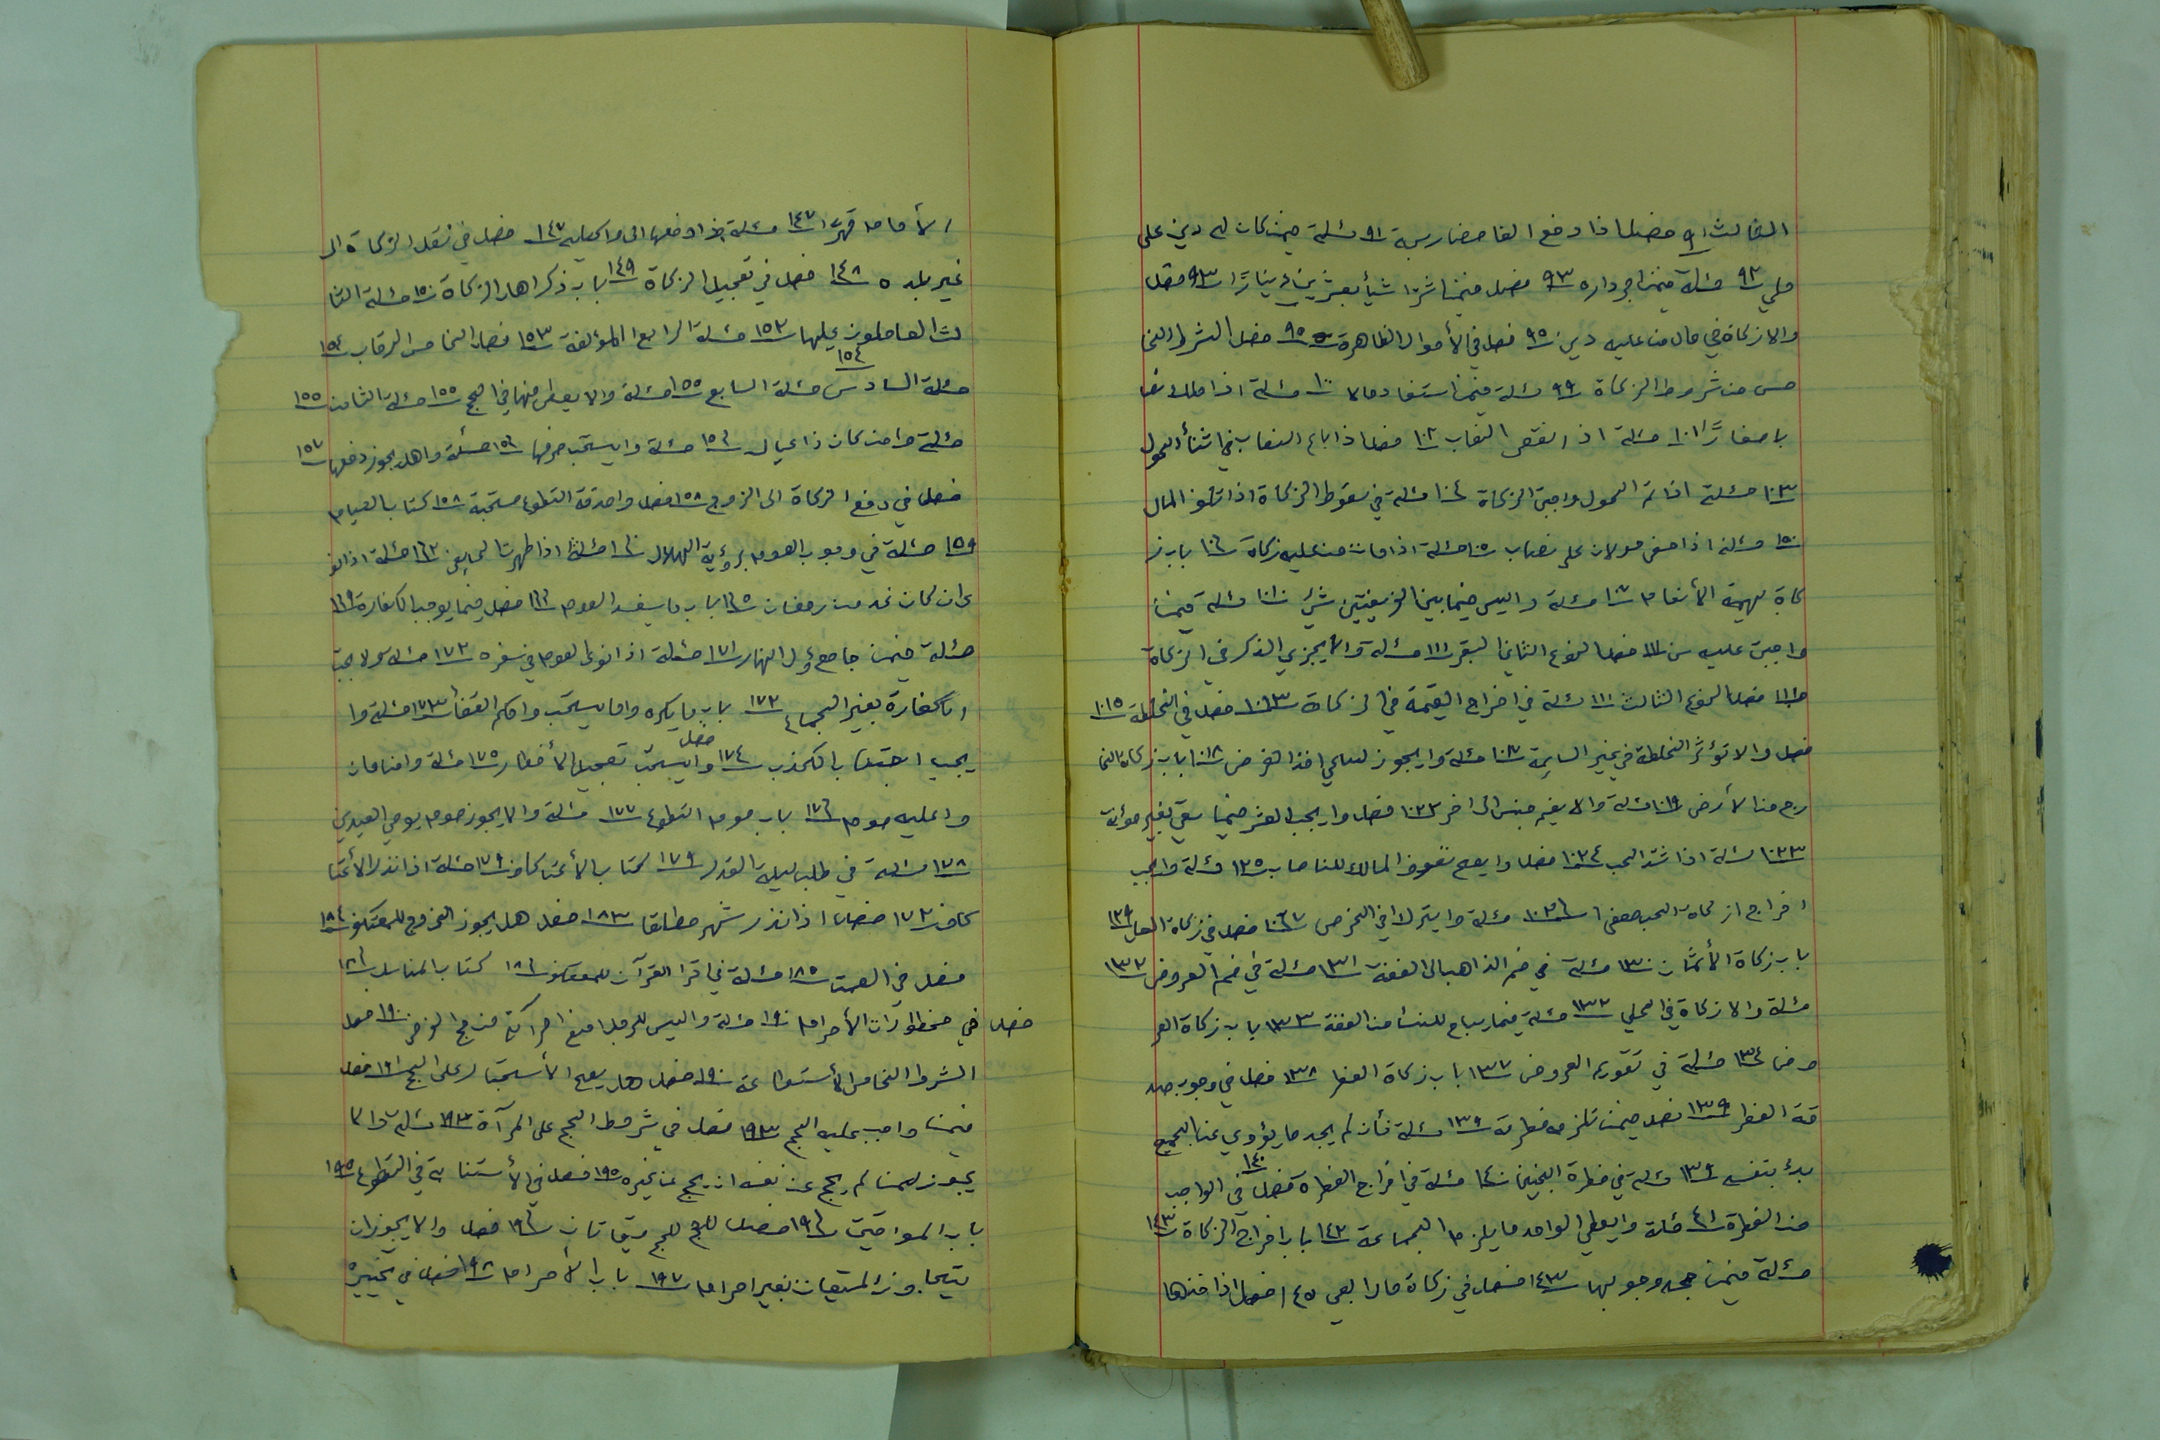 الثالث ٩١ فصل اذا دفع الفا مضاربة ٩١ مسئلة فيمن كان له دين على
ملي ٩٢ مسئلة فيمن اجر داره ٩٣ فصل فيمن اشرا شيأ بعشرين دينارا ٩٣ فصل
والا زكاة في مال من عليه دين ٩٥ فصل في الأموال الظاهرة ٩٥ فصل الشرط الخا
مس من شروط الزكاة ٩٩ مسئلة فيمن استفاد مالا ١٠٠ مسئلة اذا ملك نصا
با صغارًا ١٠١ مسئلة اذا نقص النصاب ١٠٢ فصل اذا باع النصاب في اثناء الحول
١٠٣ مسئلة اذا تم الحول واجبة الزكاة ١٠٤ مسئلة في سقوط الزكاة اذا تلف المال
١٥٠ مسئلة اذا مضى حولان على نصاب ١٠٥ مسئلة اذا مات من عليه زكاة ١٠٦ باب ز
كاة بهيمة الأنعام ١٠٧ مسئلة واليس فيما بين الفريضتين شيء ١٠١ مسئلة فيمن
واجبة عليه سن ١١١ فصل النوع الثاني البقر ١١١ مسئلة والا يجزي الذكر في الزكاة
١١١ فصل النوع الثالث ١١١ مسئلة في اخراج القيمة في الزكاة ١٠١٣ فصل في الخلطة ١٠١٥
فصل والا تؤثر الخلطة في غير السايمة ١٠١٧ مسئلة وا يجوز للساعي اخذ الفرض ١٠١٨ باب زكاة الخا
رج من الأرض ١٠١٩ مسئلة والا يضم جنس الى اخر ١٠٢٢ فصل وا يجب العشر فيما سقي بغير مؤنة
١٠٢٣ مسئلة اذا اشتد الحب ١٠٢٤ فصل وا يصح تصرف المالك للنصاب ١٢٥ مسئلة وا يجب
اخراج ازكاة الحب مصفى ١٠٢٦ مسئلة وا يترك في الخرص ١٠٢٧ فصل في زكاة العسل ١٢٩
باب زكاة الأثمان ١٣٠ مسئلة في ضم الذهب الى الفضة ١٣١ مسئلة في ضم العروض ١٣٢
مسئلة والا زكاة في الحلي ١٣٢ مسئلة فيما يباح للنسا من الفضة ١٣٣ باب زكاة العر
وض ١٣٤ مسئلة في تقويم العروض ١٣٧ باب زكاة الفطر ١٣٨ فصل في وجوب صد
قة الفطر ١٣٩ فصل فيمن تلزمه فطرته ١٣٩ مسئلة فأن لم يجد ما يؤدي عن الجميع
بدئ بنفسه ١٣٩ مسئلة في فطرة الجنين ١٤٠ مسئلة في اخراج الفطرة ١٤٠ فصل في الواجب
من الفطرة ١٤١ مسئلة وا يعطي الواحد ما يلزم الجماعة ١٤٢ باب اخراج الزكاة ١٤٣
مسئلة فيمن جحد وجوبها ١٤٣ فصل في زكاة مال الصبي ١٤٥ فصل اذا اخذها
الأمام قهرًا ١٤٧ مسئلة اذا دفعها الى واكيله ١٤٧ فصل في نقل الزكاة الى
غير بلده ١٤٨ فصل في تعجيل الزكاة ١٤٩ باب ذكر اهل الزكاة ١٥٠ مسئلة الثا
لث العاملون عليها ١٥٢ مسئلة الرابع المؤلفة ١٥٣ فصل الخامس الرقاب ١٥٤
مسئلة السادس ١٥٤ مسئلة السابع ١٥٥ مسئلة والا يعطى منها في الحج ١٥٥ مسئلة الثامن ١٥٥
مسئلة وا من كان ذا عيال ١٥٦ مسئلة وا يستحب صرفها ١٥٦ مسئلة واهل يجوز دفعها ١٥٧
فصل في دفع الزكاة الى الزوج ١٥٨ فصل واصدقة التطوع مستحبة ١٥٨ كتاب الصيام
١٥٩ مسئلة في وجوب الصوم برؤية الهلال ١٦٠ مسئلة اذا طهرت الحايض ١٦٢ مسئلة اذا نو
ى ان كان غد من رمضان ١٦٥ باب ما يفسد الصوم ١٦٦ فصل فيما يوجب الكفارة ١٦٩
مسئلة فيمن جامع اول النهار ١٧١ مسئلة اذا نوى الصوم في سفره ١٧٢ مسئلة ولا يجب
الكفارة بغير الجماع ١٧٢ باب ما يكره واما يستحب واحكم القضا ١٧٣ مسئلة وا
يجب اجتناب الكذب ١٧٤ فصل وا يستحب تعجيل الأفطار ١٧٥ مسئلة وامن مات
واعليه صوم ١٧٦ باب صوم التطوع ١٧٧ مسئلة والا يجوز صوم يومي العيدين
١٧٨ مسئلة في طلب ليلة القدر ١٧٩ كتاب الأعتكاف ١٧٩ مسئلة اذا نذر الأعتا
كاف ١٧٢ فصل اذا نذر شهر مطلقا ١٨٣ فصل هل يجوز الخروج للمعتكف ١٨٤
فصل في الصمت ١٨٥ مسئلة في اقرا القرآن للمعتكف ١٨٦ كتاب المناسك ١٨٦
فصل في محظورات الأحرام ١٩٠ مسئلة واليس للرجل منع امراته من حج الفرض ١٩٠ فصل
الشرط الخامس الأستطاعة ١٩٠ فصل هل يصح الأستجار على الحج ١٩١ فصل
فيمن واجب عليه الحج ١٩٣ فصل في شروط الحج على المرآة ١٩٣ مسئلة والا
يجوز لمن لم يحج عن نفسه ان يحج عن غيره ١٩٥ فصل في الأستنابة في التطوع ١٩٥
باب المواقيت ١٩٦ فصل للحج ميقاتان ١٩٦ فصل والا يجوز ان
يتجاوز الميقات بغير احرام ١٩٧ باب الأحرام ١٩٨ فصل في تخييره